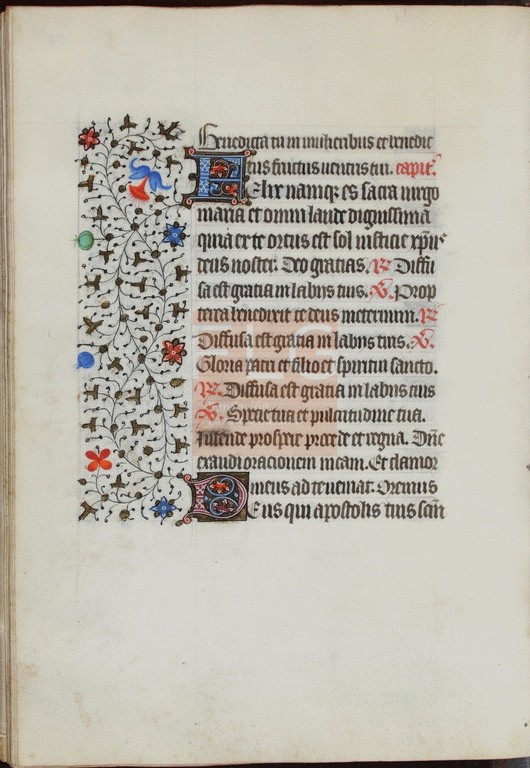 Benedicta tu in mulieribus et benedic
tus fructus uentris tui. capit̄.
Felix namq; es sacra uirgo
maria et omni laude dignissima
quia ex te ortus est sol iusticie xp̄us
deus noster. Deo gracias. R̸ Diffu
sa est gratia in labijs tuis. V̸. Prop
terea benedixit te deus in eternum. R̸
Diffusa est gratia in labijs tuis. V̸.
Gloria patri et filio et spiritui sancto.
R̸. Diffusa est gratia in labijs tuis
V̸. Specie tua et pulcritudine tua.
Intende prospere procede et regna. Dñe
exaudi orationem meam. Et clamor
meus ad te ueniat. Oremus
Deus qui apostolis tuis scm̄